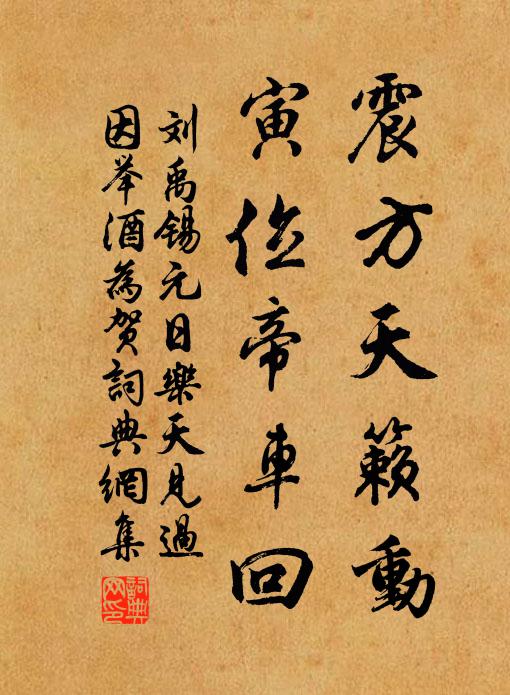 震方天籟動
寅位帝車回
刘禹锡元日樂天見過
因举酒為贺詞典網集
詞典
网印